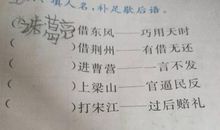 填人名，补足歇后语。
(诸葛亮)借东风——巧用天时
( )借荆州——有借无还
( )进曹营——一言不发
( )上梁山——官逼民反
( )打宋江——过后赔礼